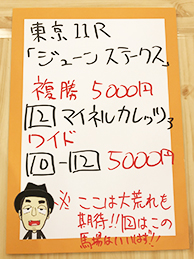 東京11R
「ジューンステークス」
複勝 5000円
12 マイネルカレッツァ
ワイド
10-12 5000円
※ここは大荒れも
期待!!12はこの
馬場はいいはず!!